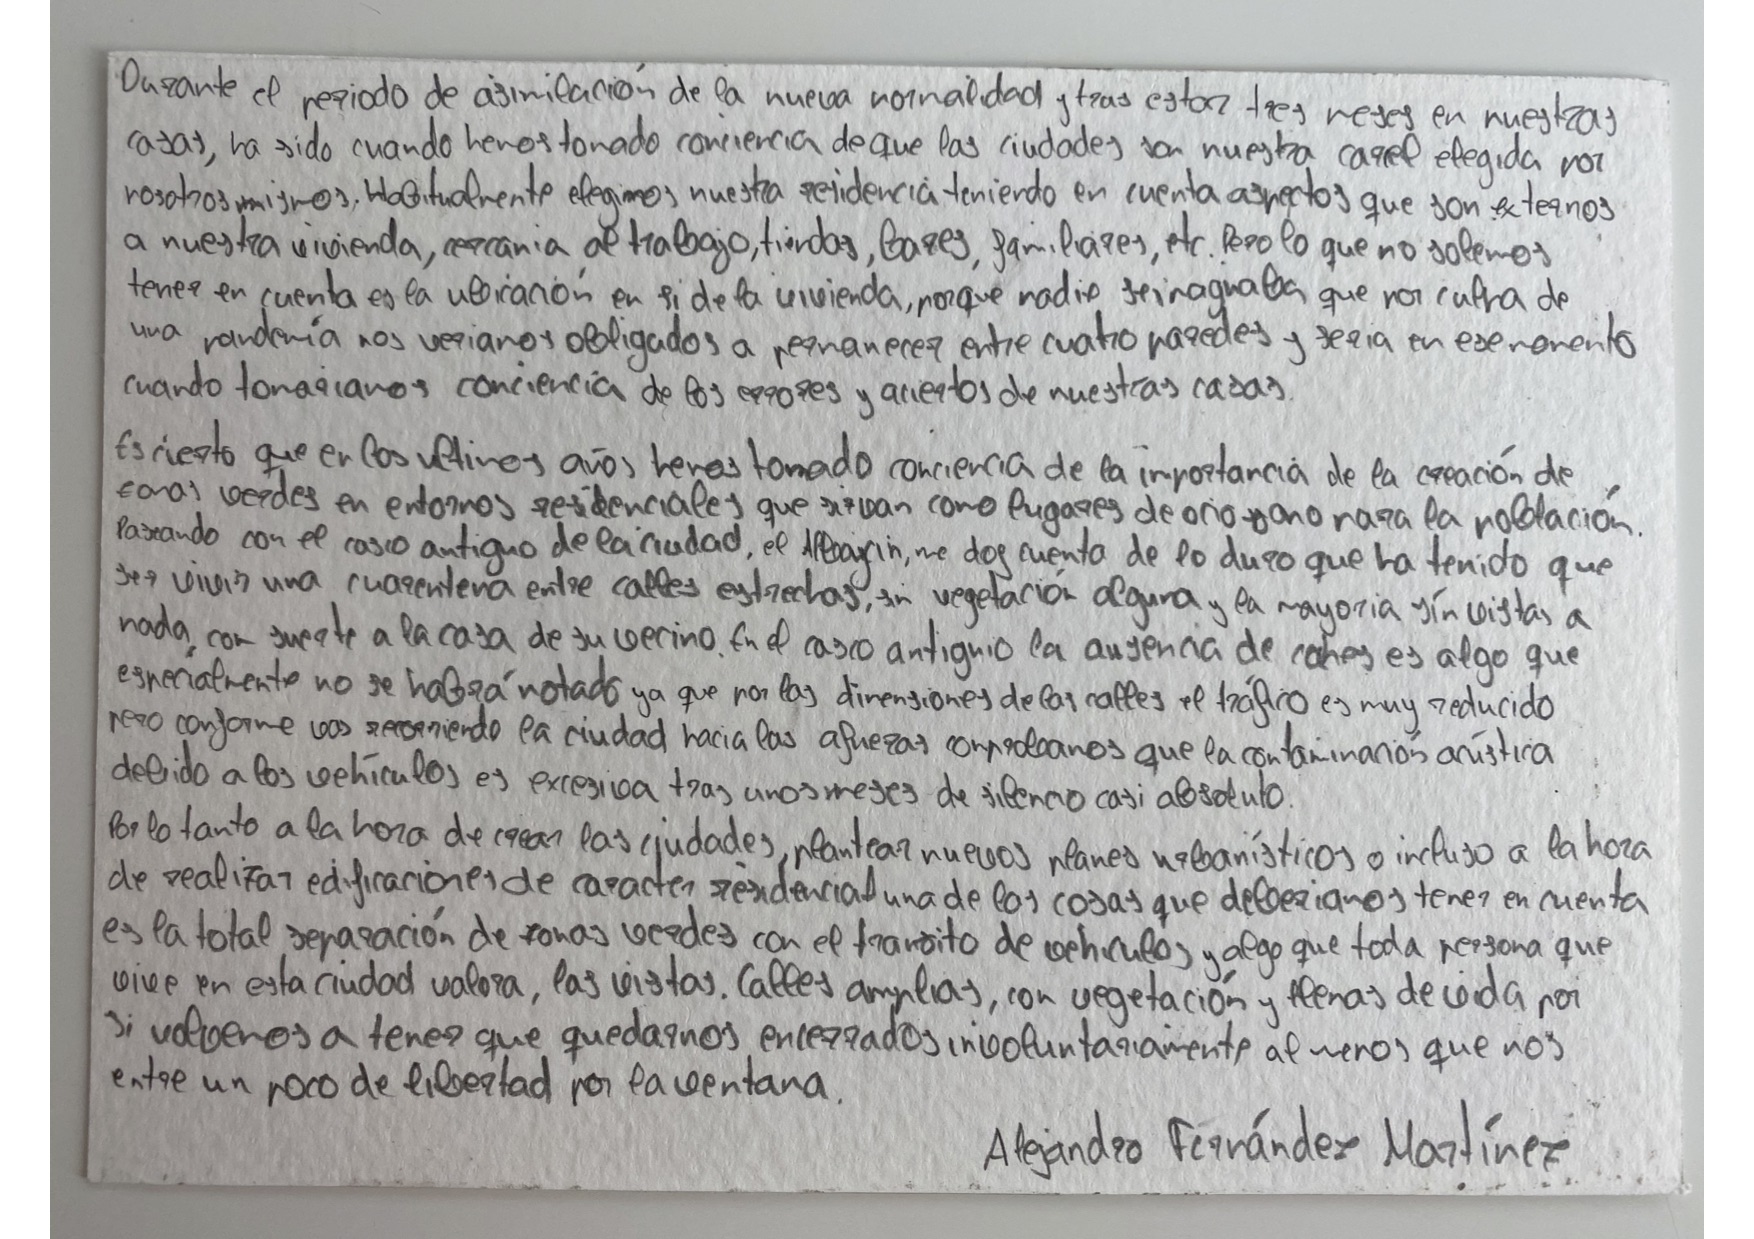 Durante el periodo de asimilación de la nueva normalidad y tras estar tres meses en nuestras
casas, ha sido cuando hemos tomado conciencia de que las ciudades son nuestra carcel elegida por
nosotros mismos. Habitualmente elegimos nuestra residencia teniendo en cuenta aspectos que son externos
a nuestra vivienda, cercania al trabajo, tiendas, bares, familiares, etc. Pero lo que no solemos
tener en cuenta es la ubicación en si de la vivienda, porque nadie se imaginaba que por culpa de
una pandemía nos veriamos obligados a permanecer entre cuatro paredes y seria en ese momento
cuando tomariamos conciencia de los errores y aciertos de nuestras casas.
Es cierto que en los ultimos años hemos tomado conciencia de la importancia de la creación de
zonas verdes en entornos residenciales que sirvan como lugares de ocio sano para la población.
Paseando con el casco antiguo de la ciudad, el Albaycin, me doy cuenta de lo duro que ha tenido que
ser vivir una cuarentena entre calles estrechas, sin vegetación alguna y la mayoria sin vistas a
nada, con suerte a la casa de su vecino. En el casco antiguio la ausencia de coches es algo que
especialmente no se habrá notado ya que por las dimensiones de las calles el tráfico es muy reducido
pero conforme vas recorriendo la ciudad hacia las afueras comprobamos que la contaminación acústica
debido a los vehículos es excesiva tras unos meses de silencio casi absoluto.
Por lo tanto a la hora de crear las ciudades, plantear nuevos planes urbanísticos o incluso a la hora
de realizar edificaciones de caracter residencial una de las cosas que deberiamos tener en cuenta
es la total separación de zonas verdes con el transito de vehiculos y algo que toda persona que
vive en esta ciudad valora, las vistas. Calles amplias, con vegetación y llenas de vida por
si volvemos a tener que quedarnos encerrados involuntariamente al menos que nos
entre un poco de libertad por la ventana.
Alejandro Fernández Martínez